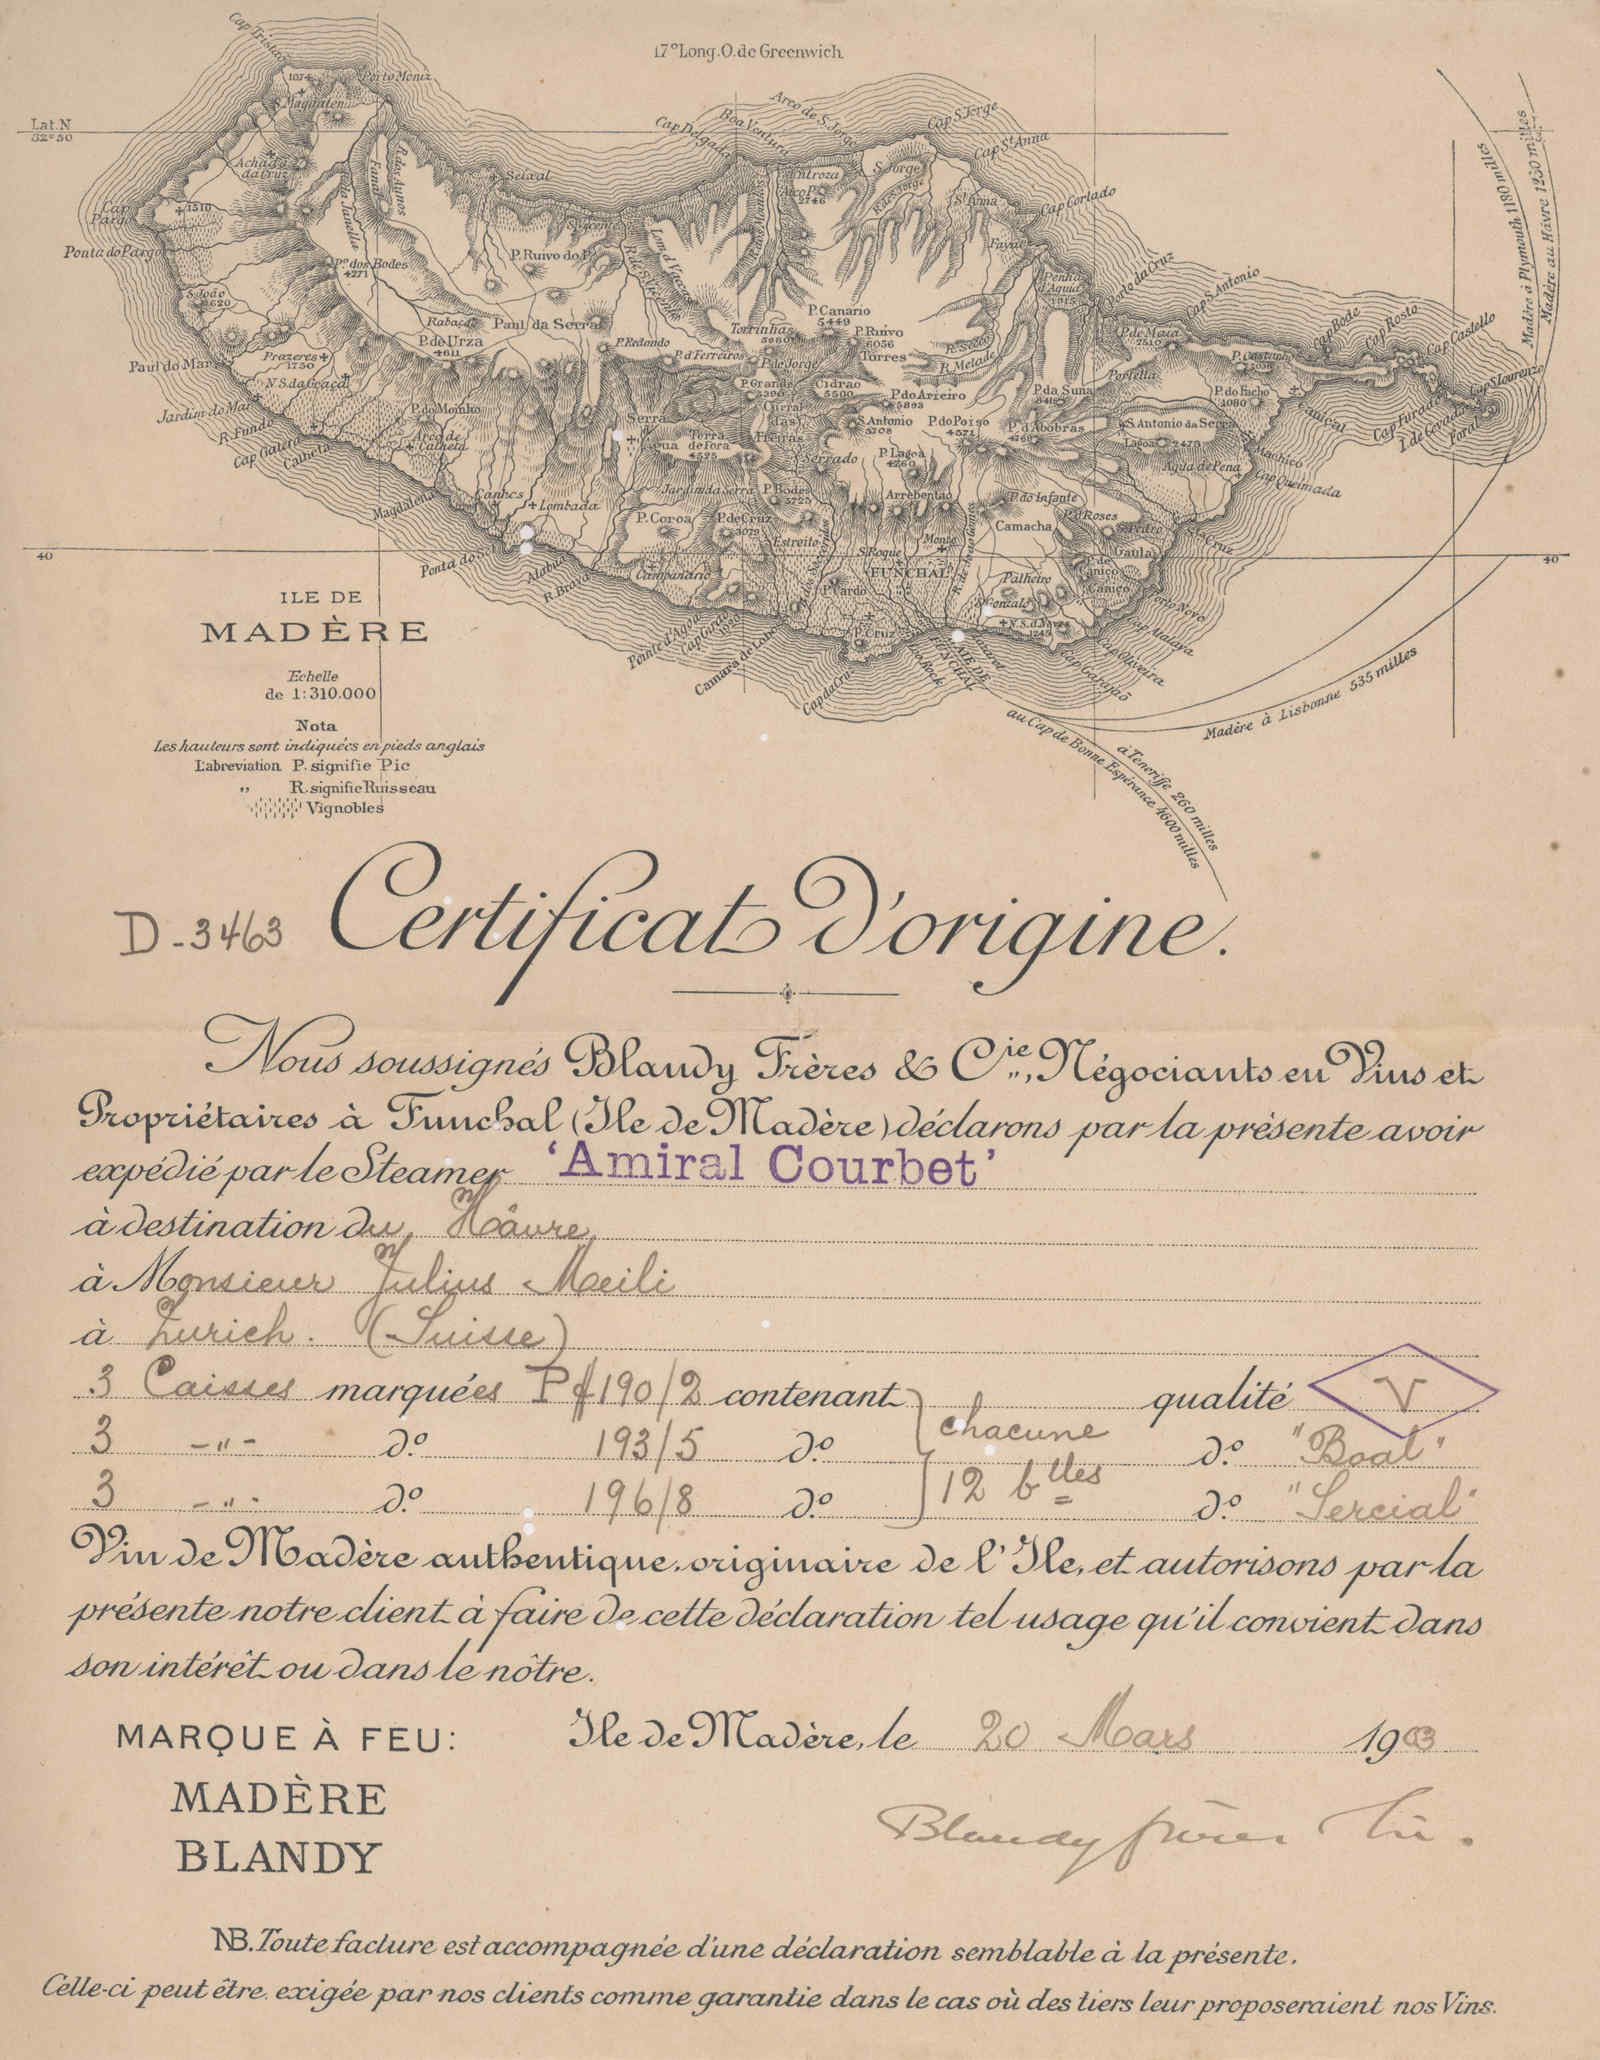 17° Long. O. de Greenwich
Lat. N
32° 50
Cap Tristao
1074
Porto Moniz
S. Magdalena
Achada
da Cruz
Seixal
Cap Delgado
Boa Ventura
Arco de S. Jorge
Cap S. Jorge
Cap St Anna
Cap Cortado
S. Jorge
St Anna
Fayal
Entroza
Arco P.
2746
Cap
Pargo
1510
Ponta do Pargo
Po. dos Bodes
4271
P. Ruivo do P.
S. João
Penha
d'Aguia
1915
Porto da Cruz
Cap S. Antonio
Cap Bode
Cap Rosto
Cap Castello
Cap S. Lourenzo
Rabaçal
Paul da Serra
P. de Urza
4611
P. Redondo
P. d Ferreiros
Torrinhas
5980
P. Canario
5449
P. Ruivo
6056
Torres
P. de Jorge
P. Grande
Cidrao
5500
R. Secco
R. Metade
P. de Maia
2510
P. Castanho
Portella
P. do Facho
1080
Paul do Mar
Prazeres
1750
N. S. da Graça
Jardim do Mar
R. Fundo
Cap Galera
Calheta
P. do Moinho
Arco de
Calheta
Serra
Agua
Terra
de Fora
4525
Curral
das
Freiras
P. do Arreiro
5893
S. Antonio
5706
P. do Poiso
4571
P. da Suna
P. d'Abobras
S. Antonio da Serra
Lagoa 2475
Agua de Pena
Machico
Cap Queimada
Caniçal
Cap Furado
Magdalena
Canhes
Lombada
Jardim da Serra
P. Bodes
3725
Serrado
P. Lagoa
4760
Arrebentao
P. do Infante
P. d Roses
Camacha
S. Pedro
Sta Cruz
Gaula
40
40
Ponta do
R. Brava
P. Coroa
P. de Cruz
3079
Estreito
Campanario
S. Roque
Monte
FUNCHAL
Palheiro
S. Gonzalo
P. de
Caniço
Caniço
Porto Novo
P. Cardo
P. Cruz
N. S. d. Neves
1245
Pointe d'Agoa
Camara de Lobos
Cap da Cruz
Cap Garajaõ
Cap Oliveira
Madère à Plymouth 1180 milles
Madère au Hâvre 1230 milles
Madère à Lisbonne 535 milles
au Cap de Bonne Espérance 4600 milles
à Teneriffe 260 milles
ILE DE
MADÈRE
Echelle
de 1:310.000
Nota
Les hauteurs sont indiquées en pieds anglais
L'abreviation P. signifie Pic
„ R. signifie Ruisseau
Vignobles
D-3463
Certificat d'origine.
Nous soussignés Blandy Frères & Cie„, Négociants en Vins et
Propriétaires à Funchal (Ile de Madère) déclarons par la présente avoir
expédié par le Steamer 'Amiral Courbet'
à destination du Hâvre
à Monsieur Julius Meili
à Zurich. (Suisse)
3 Caisses marquées 190/2 contenant qualité V
3 -„- do. 193/5 do. chacune do. "Boal"
3 -„- do. 196/8 do. 12 btlles do. "Sercial"
Vin de Madère authentique, originaire de l'Ile, et autorisons par la
présente notre client à faire de cette déclaration tel usage qu'il convient dans
son intérêt ou dans le nôtre.
Ile de Madère, le 20 Mars 1903
MARQUE À FEU:
MADÈRE
BLANDY
Blandy frères Cie.
NB. Toute facture est accompagnée d'une déclaration semblable à la présente.
Celle-ci peut être exigée par nos clients comme garantie dans le cas où des tiers leur proposeraient nos Vins.